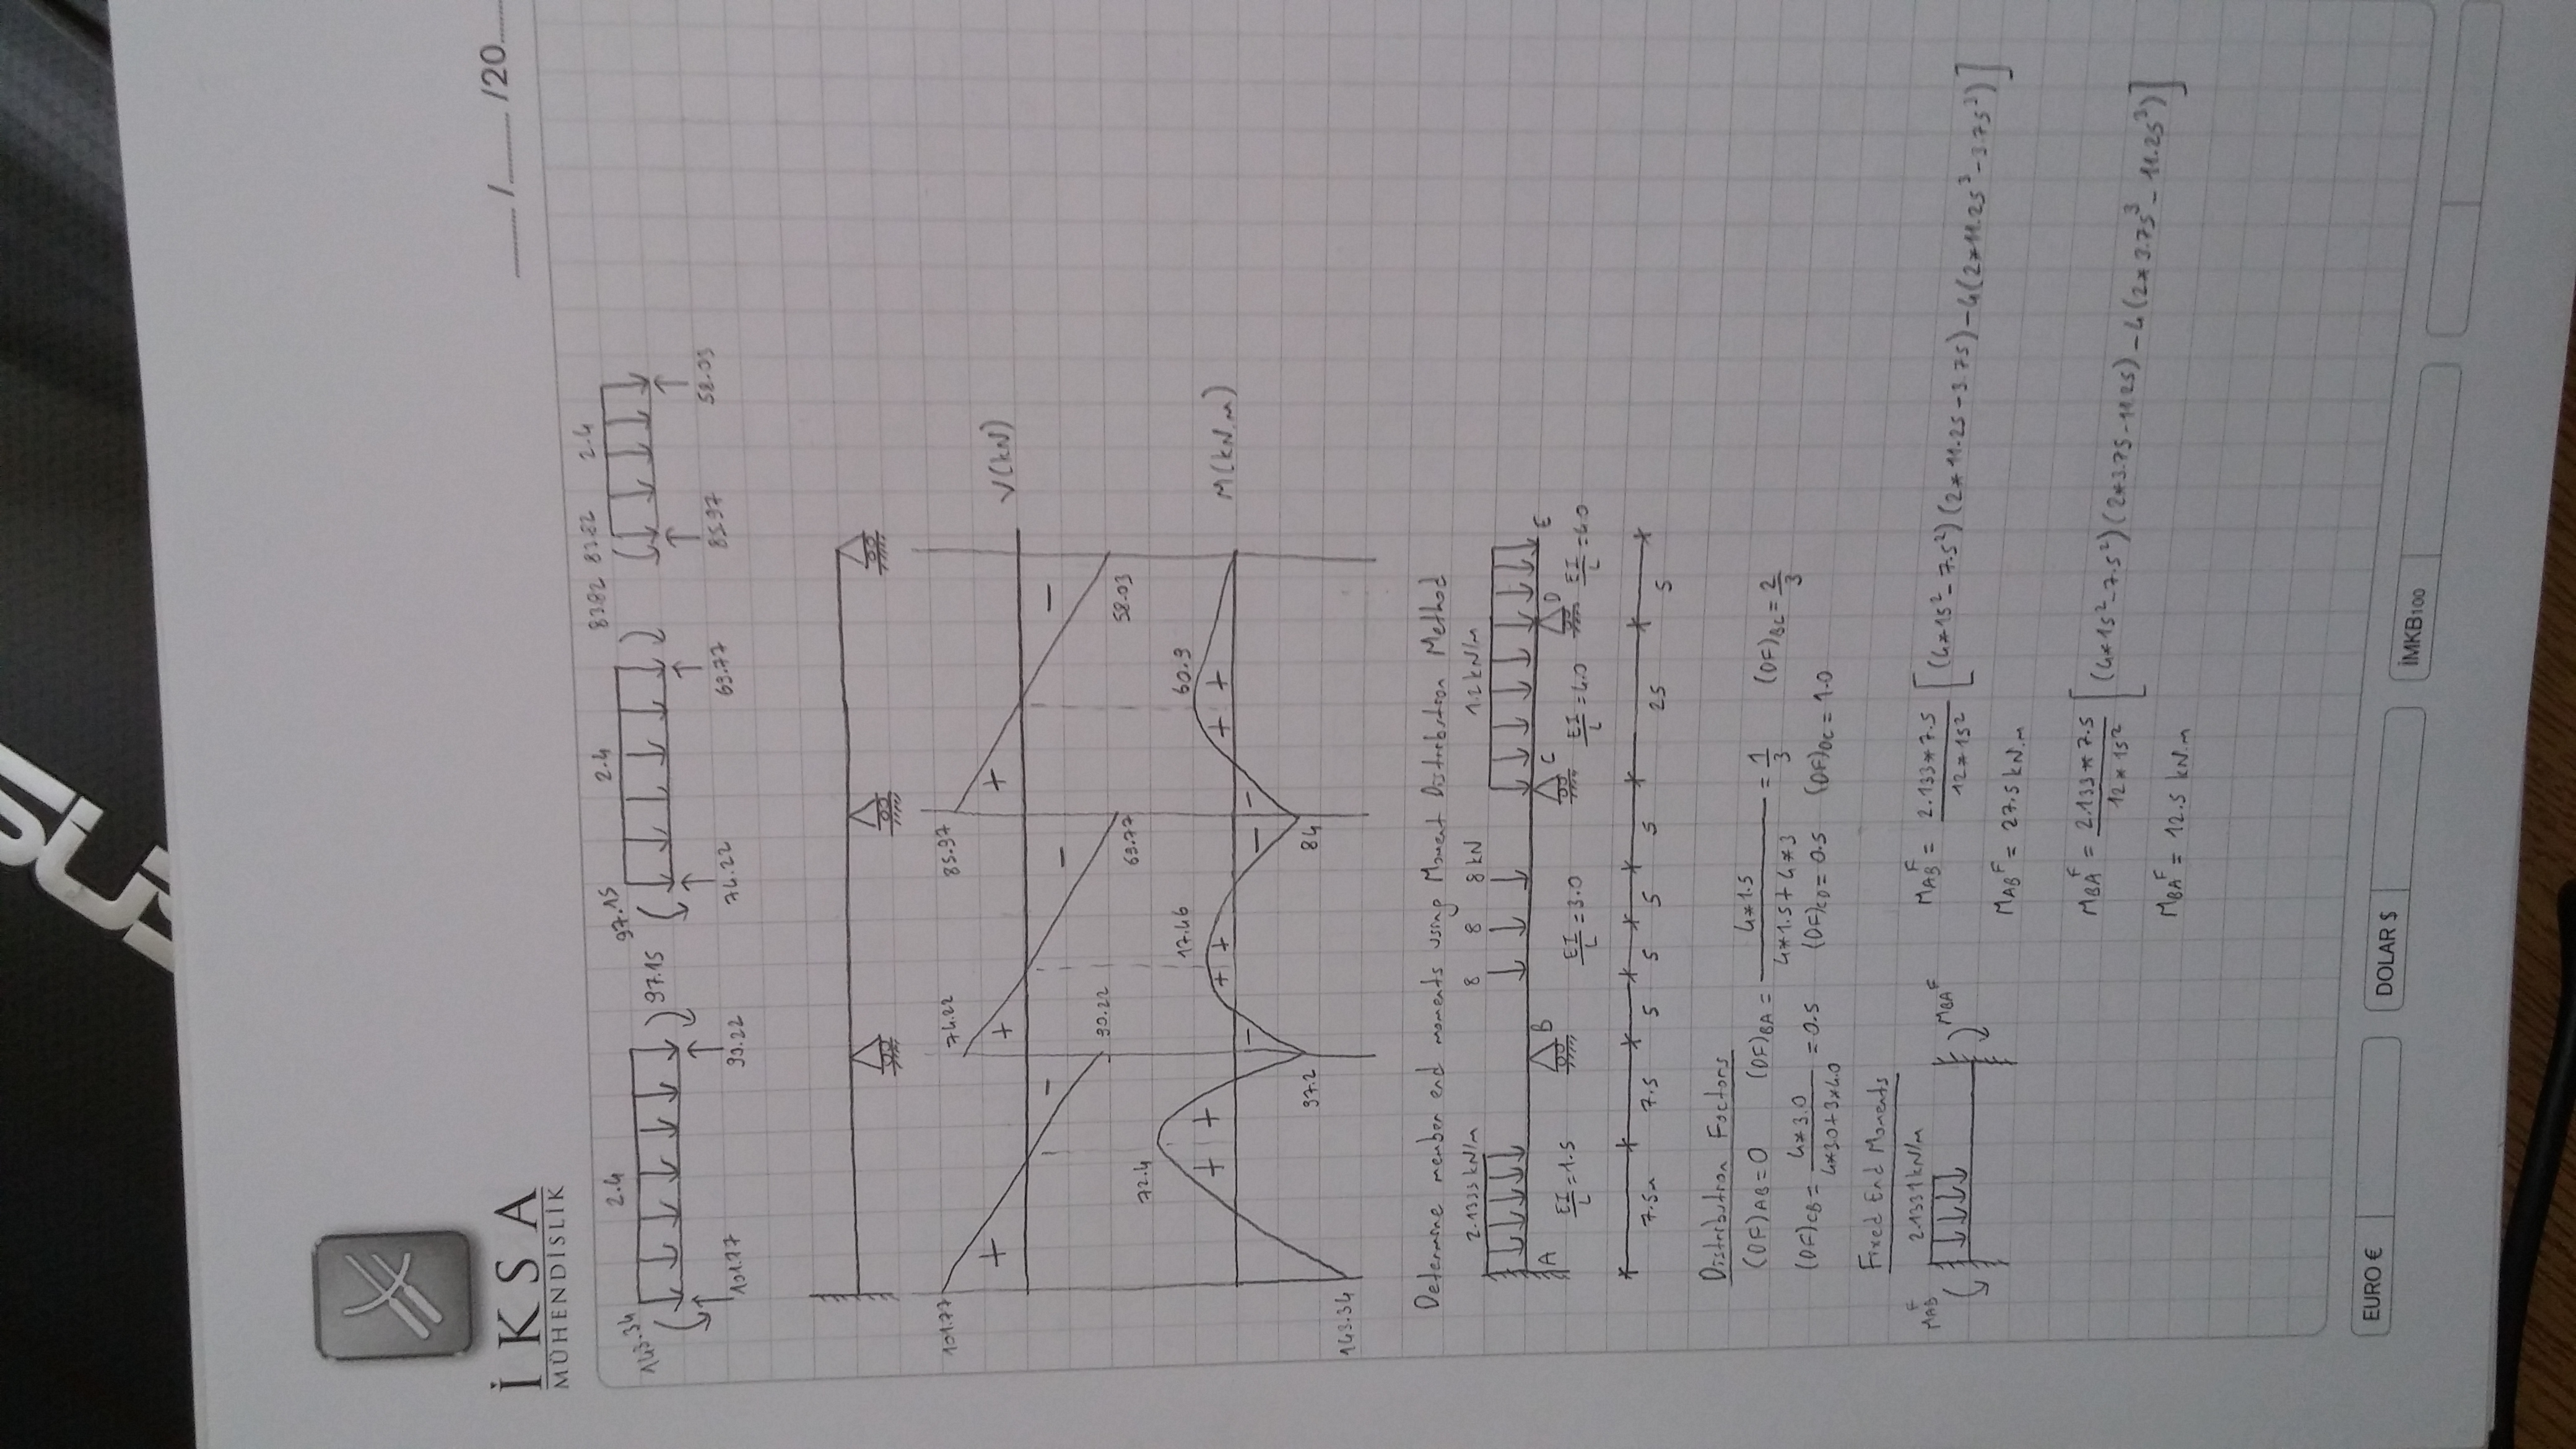 İKSA
MÜHENDİSLİK
/ /20
143.34 2.4 97.15 97.15 2.4 83.82 83.82 2.4
101.77 99.22 74.22 69.77 85.97 58.03
101.77 74.22 85.97
+ + + V(kN)
- - -
99.22 69.77 58.03
72.4 17.46 60.9
+ + + + + + M(kN.m)
- - -
97.2 84
143.34
Determine member end moments using Moment Distribution Method
2.1333 kN/m 8 8 8 kN 1.2 kN/m
A B C D E
EI/L = 1.5 EI/L = 3.0 EI/L = 4.0 EI/L = 4.0
7.5m 7.5 5 5 5 5 25 5
Distribution Factors
(DF)AB = 0 (DF)BA = 4*1.5 / 4*1.5+4*3 = 1/3 (DF)BC = 2/3
(DF)CB = 4*3.0 / 4*3.0+3*4.0 = 0.5 (DF)CD = 0.5 (DF)DC = 1.0
Fixed End Moments
MAB^F 2.1331 kN/m MBA^F
MAB^F = 2.133*7.5 / 12*15² [(4*15²-7.5²)(2*11.25-3.75)-4(2*11.25³-3.75³)]
MAB^F = 27.5 kN.m
MBA^F = 2.133*7.5 / 12*15² [(4*15²-7.5²)(2*3.75-11.25)-4(2*3.75³-11.25³)]
MBA^F = 12.5 kN.m
EURO €
DOLAR $
İMKB100